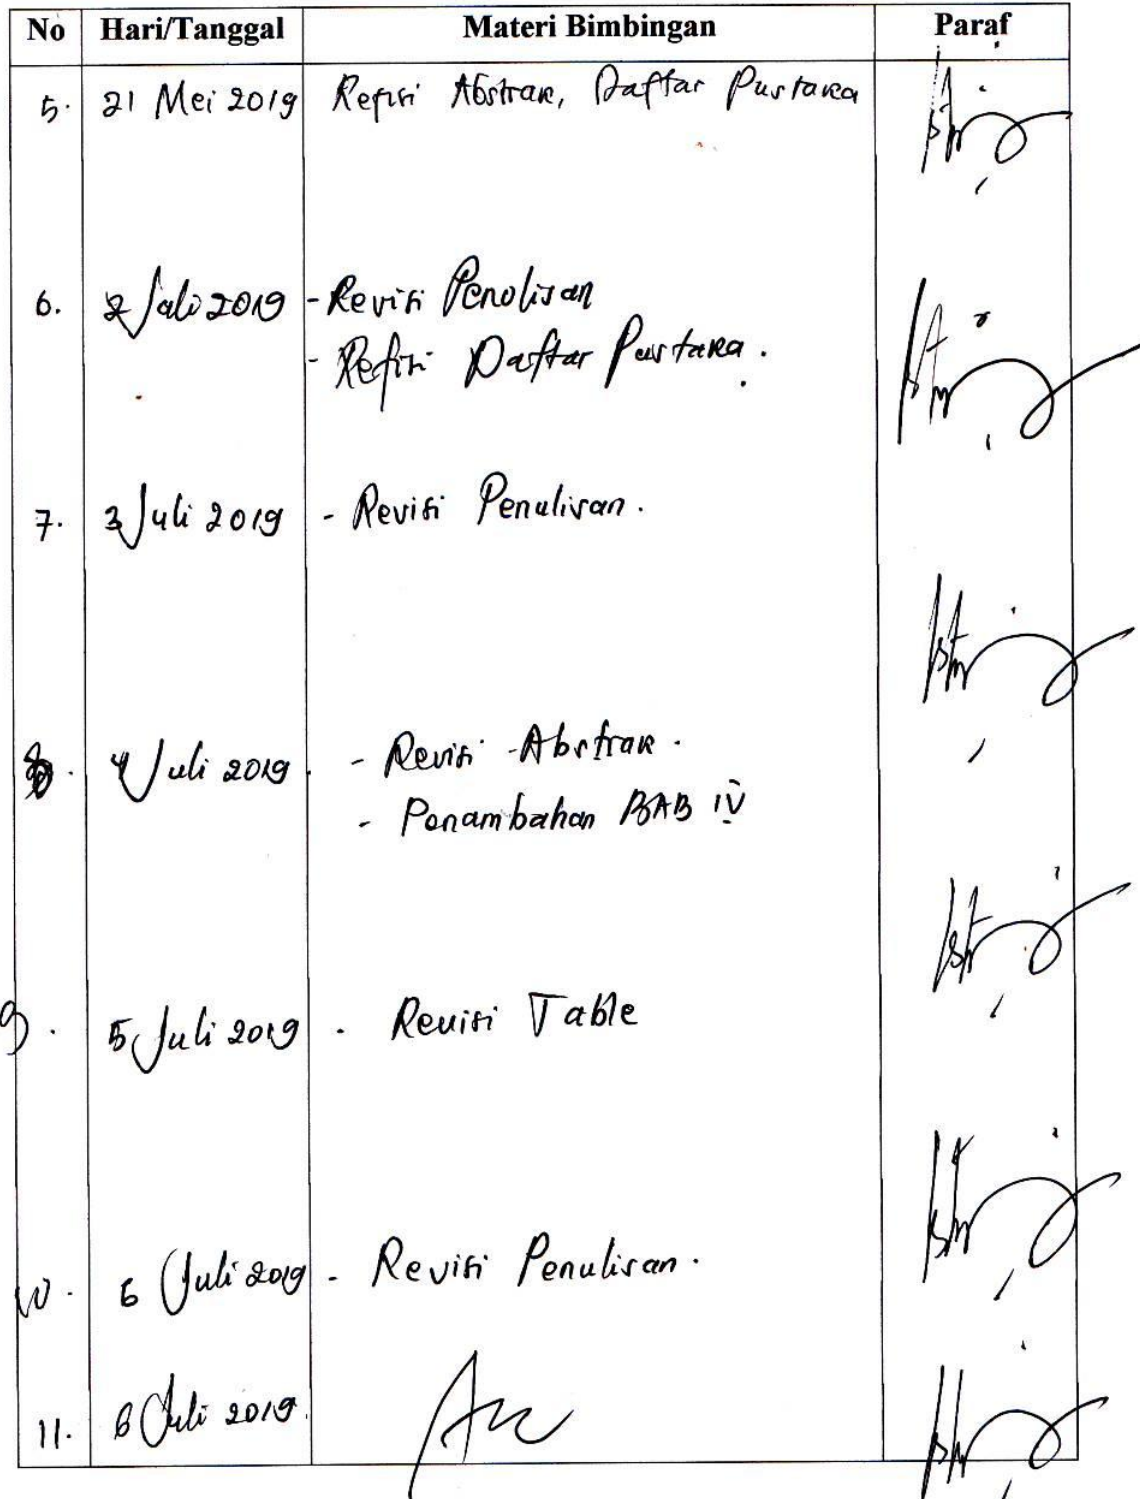 No Hari/Tanggal Materi Bimbingan Paraf
5. 21 Mei 2019 Refisi Abstrak, Daftar Pustaka
6. 2 Juli 2019 - Revisi Penulisan
- Refisi Daftar Pustaka.
7. 3 Juli 2019 - Revisi Penulisan.
8. 4 Juli 2019 - Revisi Abstrak.
- Penambahan BAB IV
9. 5 Juli 2019 - Revisi Table
10. 6 Juli 2019 - Revisi Penulisan.
11. 6 Juli 2019